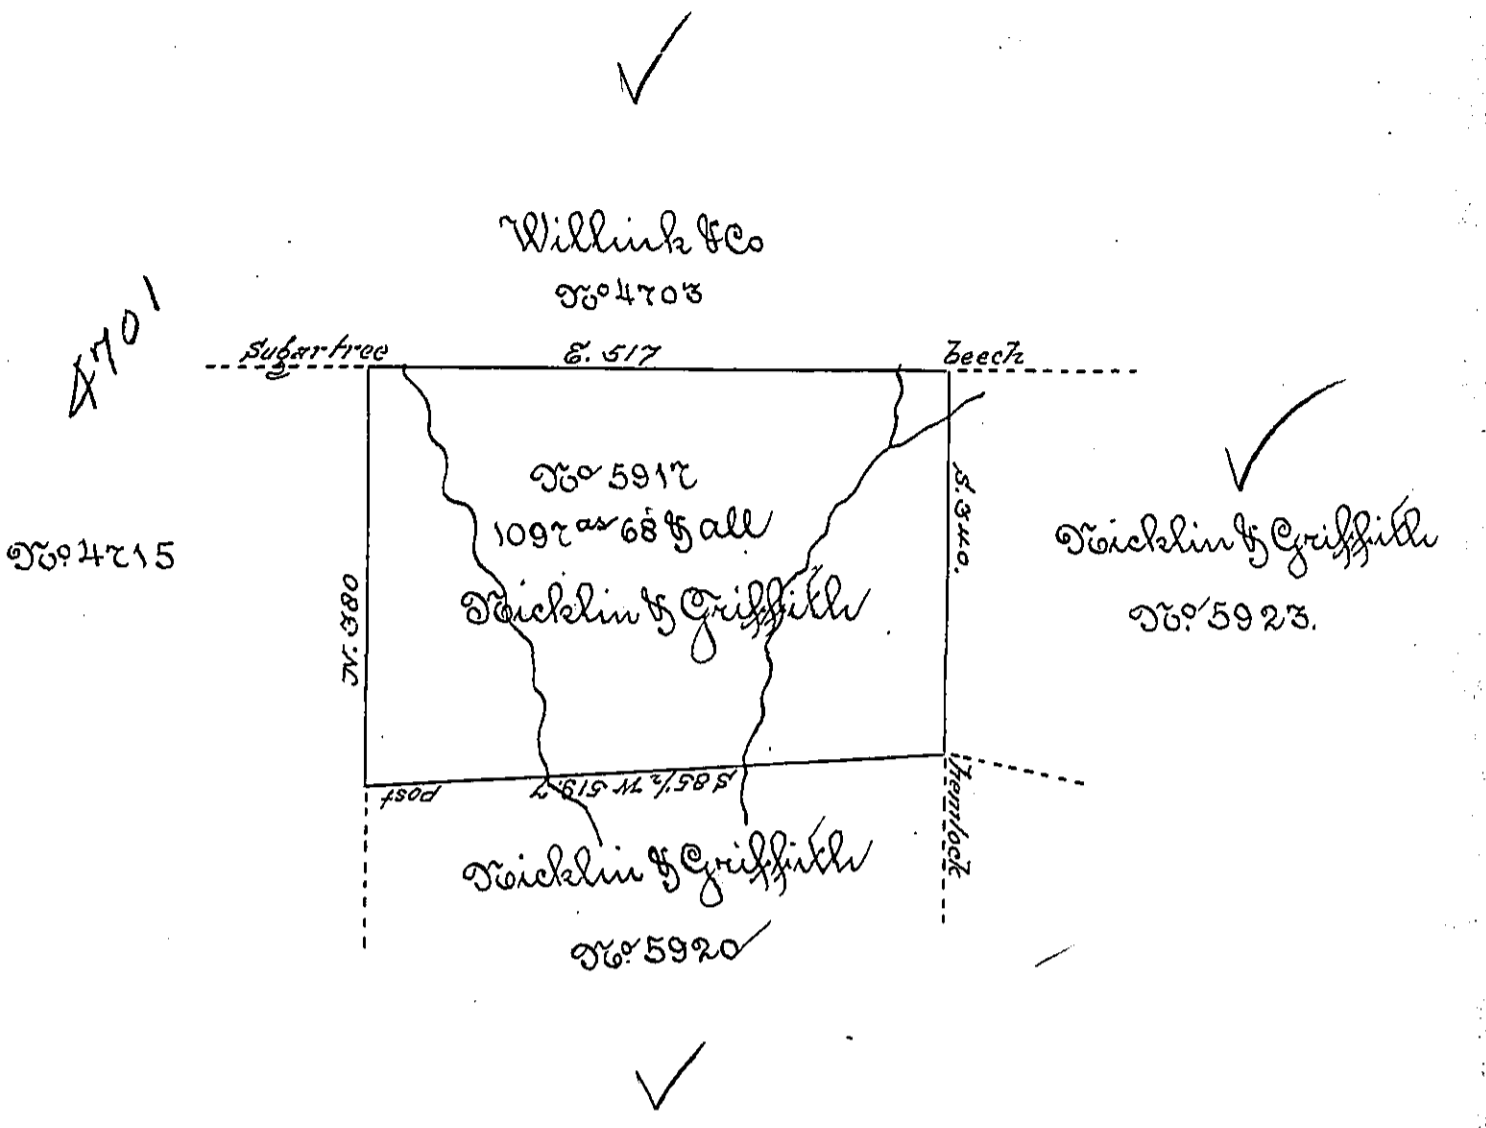 Willink & Co
No 4703
4701
Sugartree
E. 517
beech
No 5917
1097 as 68 & all
Nicklin & Griffith
No. 4715
N. 380
S. 340.
Nicklin & Griffith
No. 5923.
post
S 85½ W 519.7
hemlock
Nicklin & Griffith
No. 5920